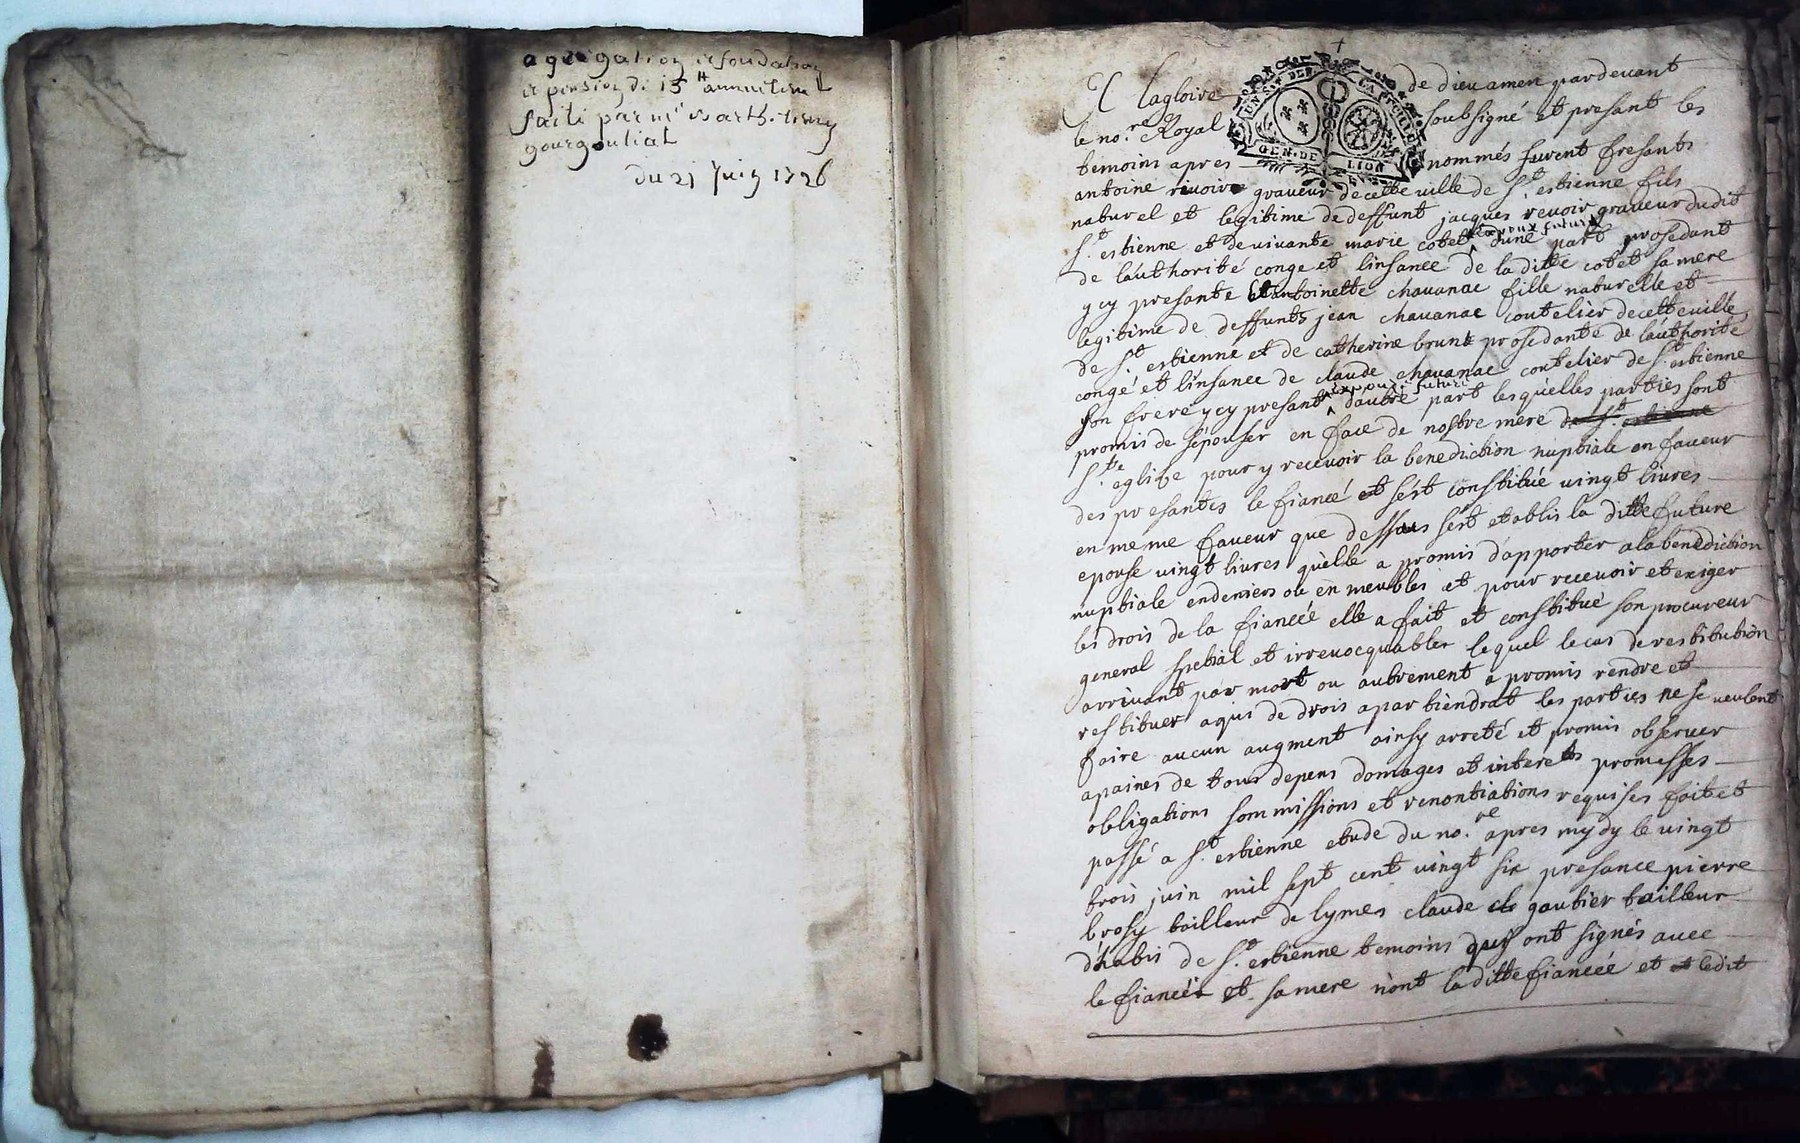 agregation et fondation
et pension de 15 ₶ annuellem^t
faite par m^e barth. 
gourgouliat
du 21 Juin 1726
A lagloire de dieu amen pardevant
le no.^re Royal soubsigné et presant les
temoins apres nommés furent presants
antoine rivoire graveur decette ville de S.^t estienne fils
naturel et legitime dedeffunt jacques revoir graveur dudit
S.^t estienne et devivante marie cotet epoux futur dune part prosedant
de lauthorité conge et linsance de la ditte cotet sa mere
ycy presante et antoinette chavanac fille naturelle et
legitime de deffunts jean chavanac coutelier decetteville
de S.^t estienne et de catherine brunt prosedante de lauthorité
congé et linsance de claude chavanac coutelier de S.^t estienne
son frere ycy presant epouse future dautre part lesquelles parties sont
promis de sepouser en face de nostre mere de S.^t estienne
S.^te eglise pour y recevoir la benediction nuptiale en faveur
des presantes le fiancé et sést constitué vingt livres
en meme faveur que dessus sést etablis la ditte future
epouse vingt livres quélle a promis dapporter a la benediction
nuptiale endeniers ou en meubles et pour recevoir et exiger
les drois de la fiancée elle a fait et constitué son procureur
general spetial et irrevocquabler le quel le cas de restitution
arrivant par mort ou autrement a promis rendre et
restituer aqui de drois apartiendrat les parties ne se veulent
faire aucun augment ainsy arreté et promis observer
apaines de tous depens domages et interets promesses
obligations sommissions et renontiations requises fait et
passé a S.^t estienne etude du no.^re apres mydy le vingt
trois juin mil sept cent vingt six presance pierre
brosy tailleur de lymes claude gautier tailleur
d'habis de S.^t estienne temoins qui ont signés avec
le fiancér et sa mere nont la ditte fiancée et et ledit
GEN·DE LION